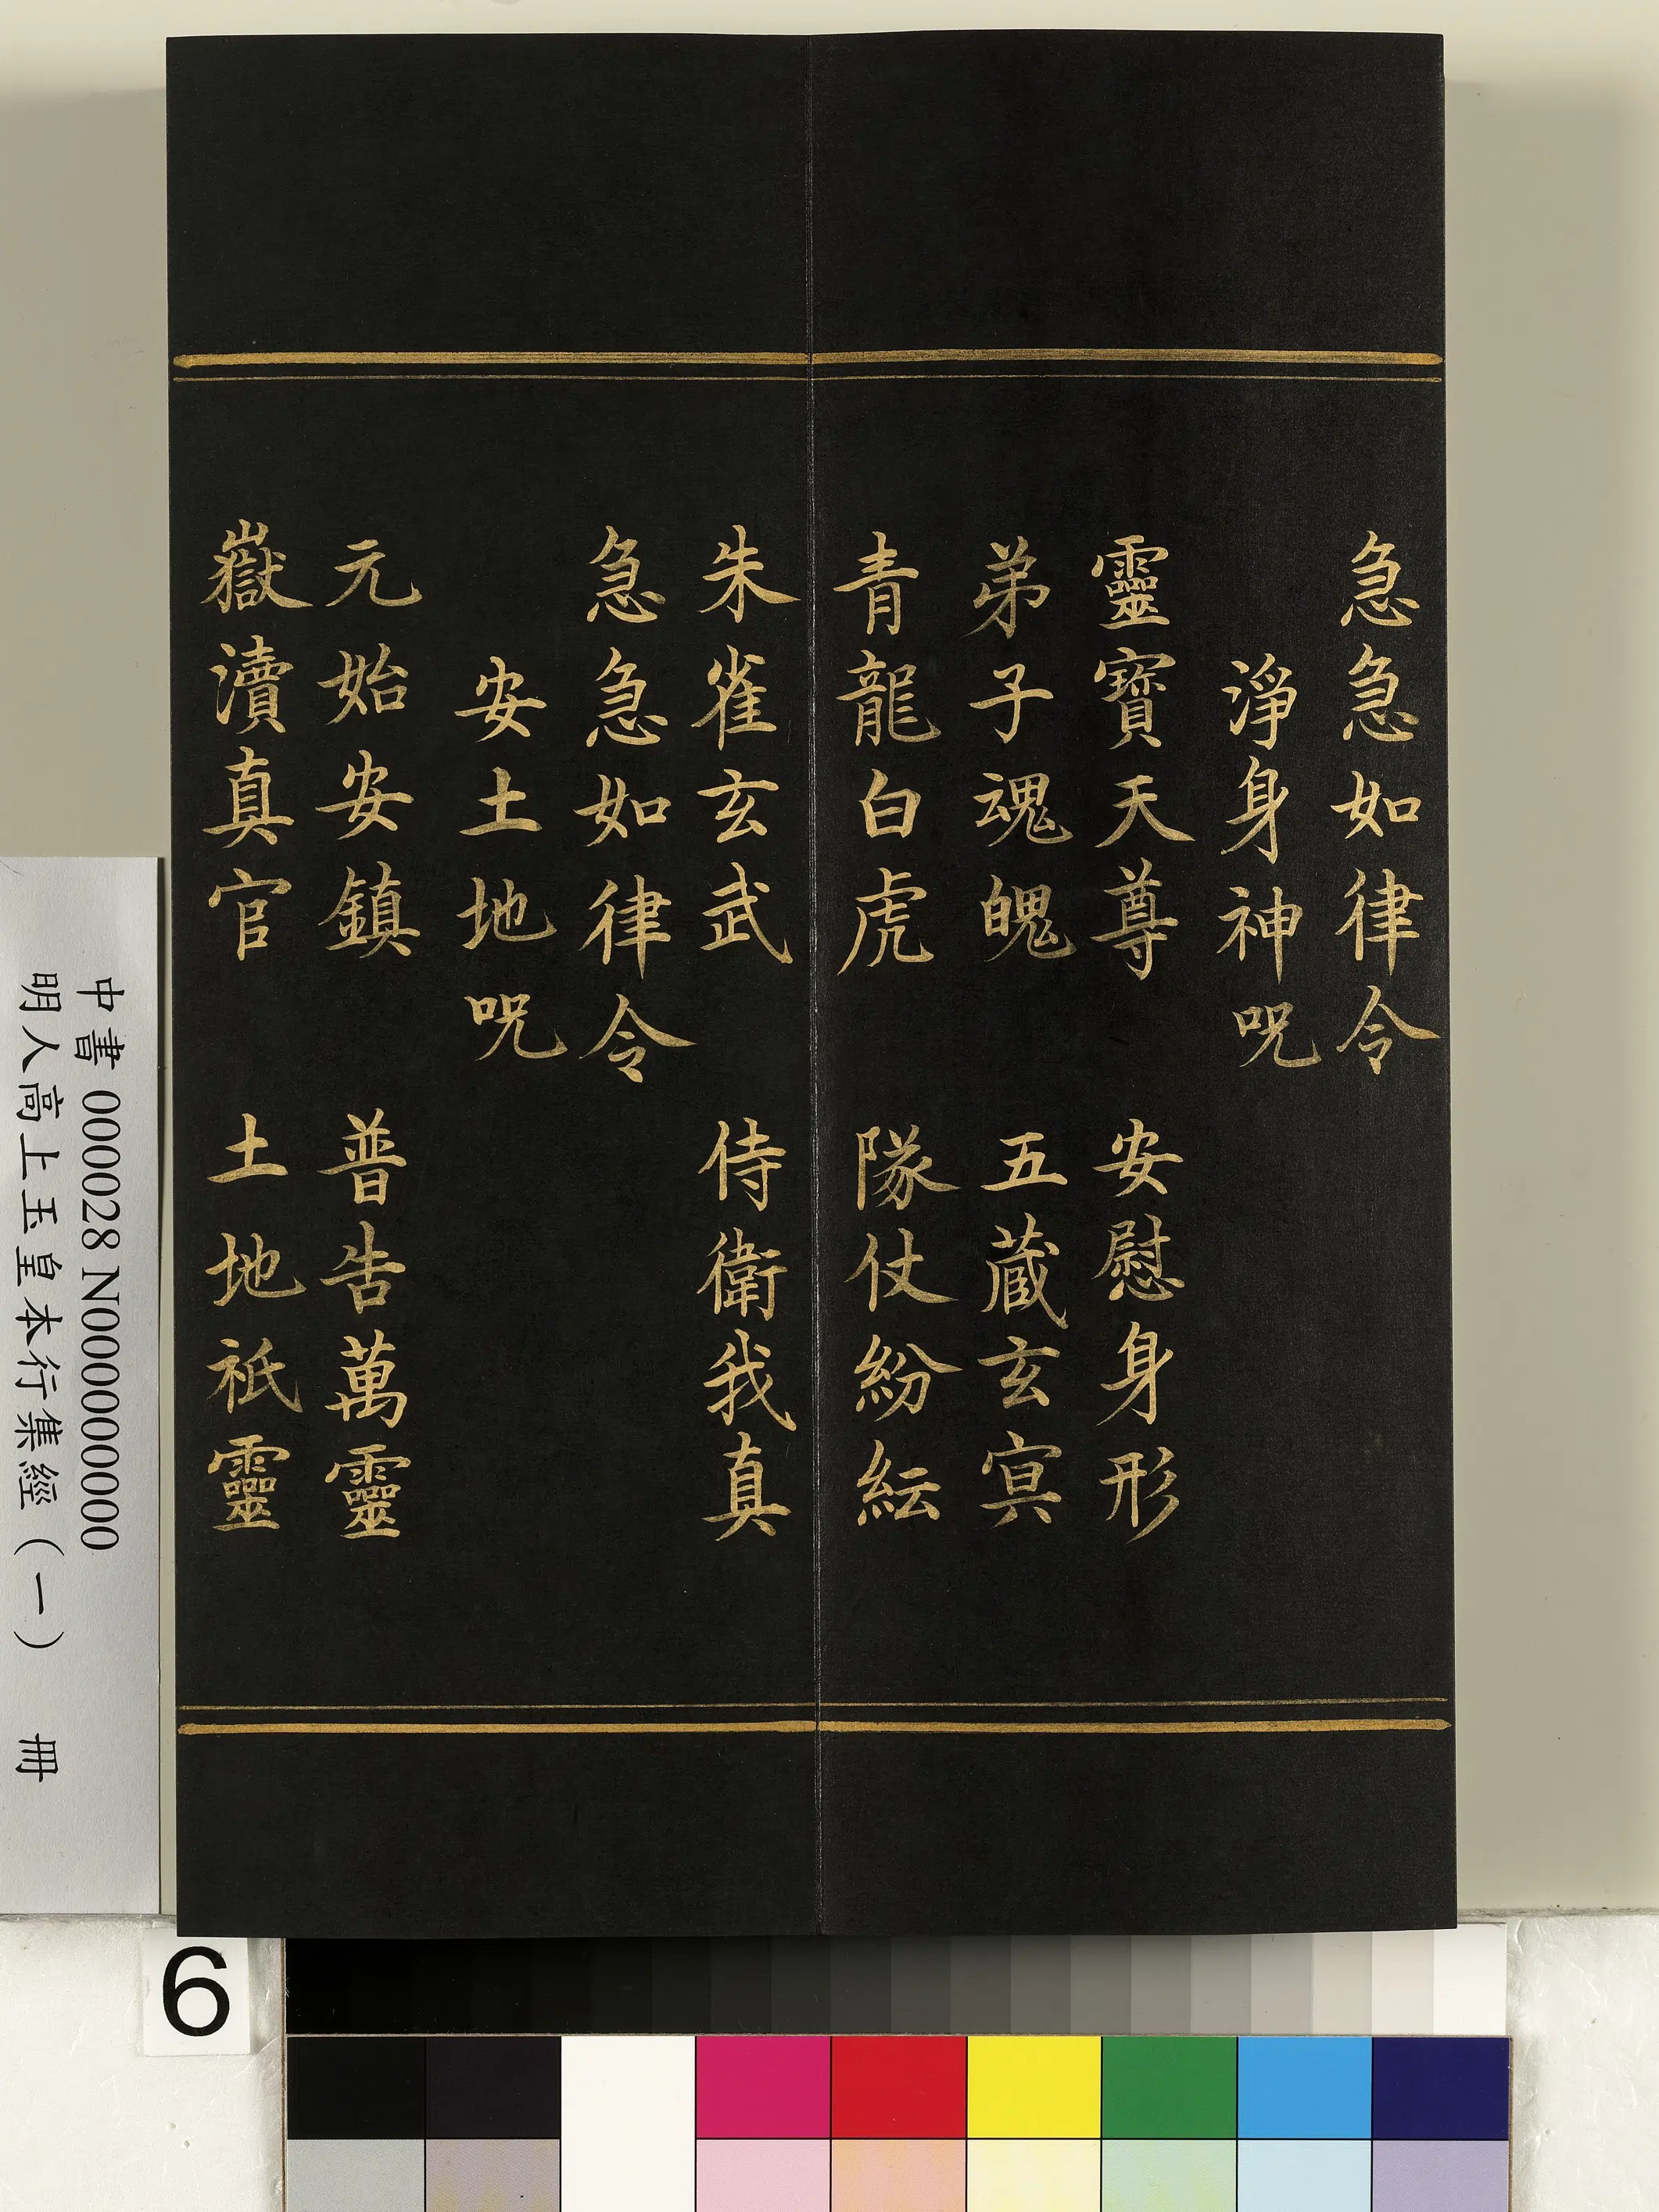 急急如律令
淨身神呪
靈寶天尊 安慰身形
弟子魂魄 五蔵玄㝠
青龍白虎 隊仗紛紜
朱雀玄武 侍衛我真
急急如律令
安土地呪
元始安鎮 普告萬靈
嶽瀆真官 土地祇靈
中書 000028 N000000000
明人高上玉皇本行集經（一） 冊
6